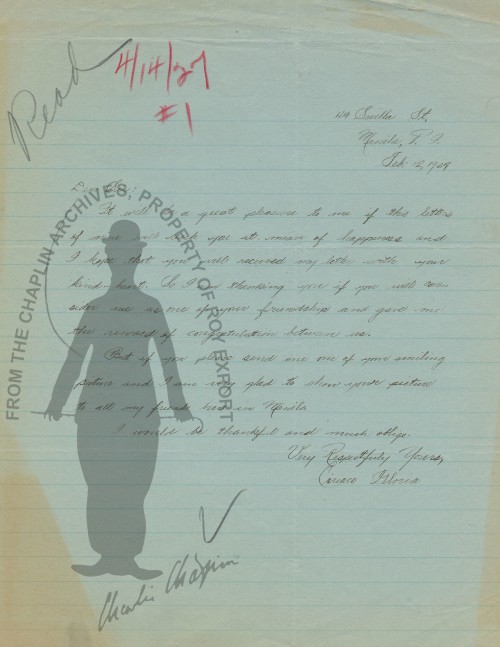 Read
4/14/27
#1
St,
Manila, P. I.
Feb. 12, 19
Dear Sir:
It will be a great pleasure to me if this letter
of mine will you at mean of happiness and
I hope that you will received my letter with your
kind-heart. So I am thanking you if you will con-
sider me as one of your friendship and gave me
the reward of congratulation between us.
But if you please send me one of your smiling
picture and I am very glad to show your picture
to all my friend here in Manila.
I would be thankful and much oblige.
Very Respectfully Yours,
Ciriaco
Charlie Chaplin
FROM THE CHAPLIN ARCHIVES, PROPERTY OF ROY EXPORT